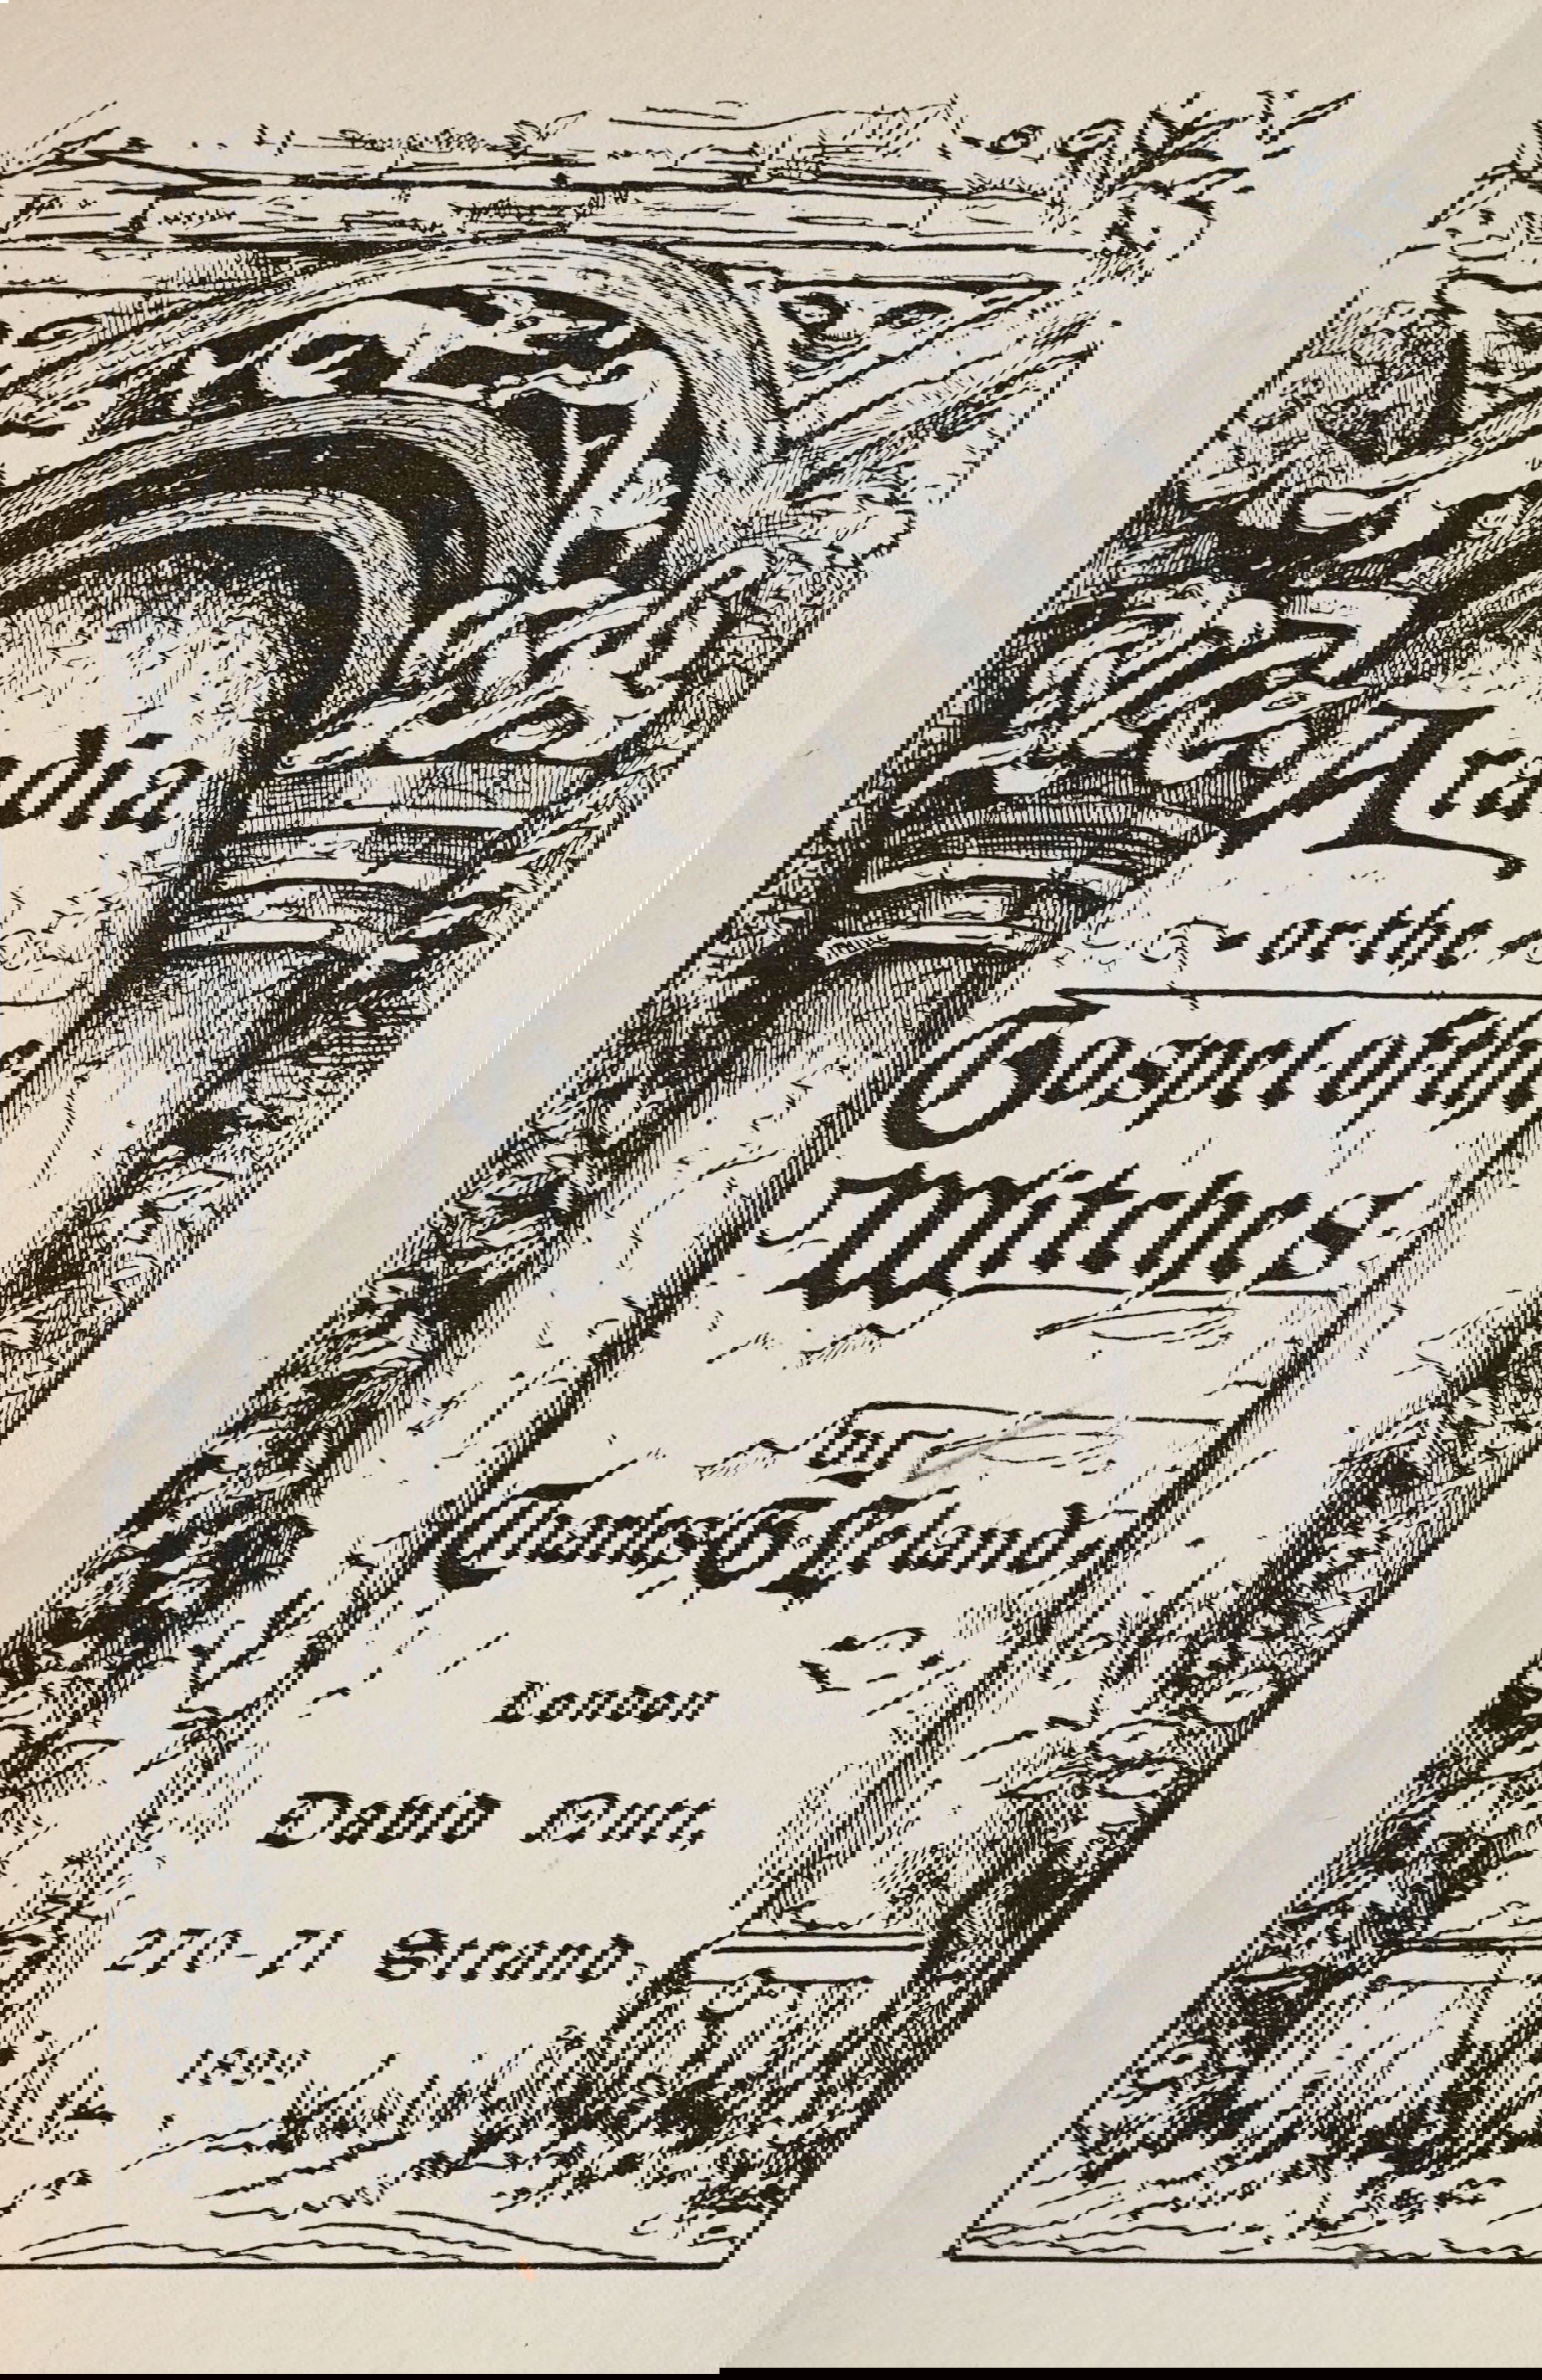 Aradia
or the
Gospel of the
Witches
by
Charles G Leland
London
David Nutt,
270-71 Strand,
1899